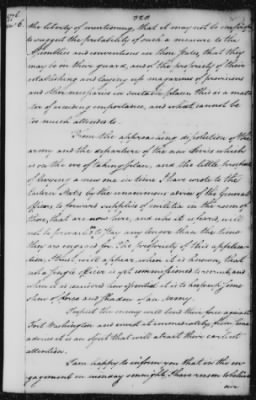 1776
Novr. 6.
320
the liberty of mentioning, that it may not be improper
to suggest the probability of such a measure to the
Assemblies and conventions in those States, that they
may be on their guard, and of the propriety of their
establishing and laying up magazines of provisions
and other necessaries in suitable places. this is a mat-
ter of exceeding importance, and what cannot be
too much attended to.
From the approaching dissolution of the
army and the departure of the new Levies which
is on the eve of taking place, and the little prospect
of levying a new one in time, I have wrote to the
Eastern States by the unanimous advice of the General
Officers to forward supplies of militia in the room of
those, that are now here, and who it is feared, will
not be prevailed on to stay any longer than the time
they are engaged for. The propriety of this applica-
tion, I trust, will appear, when it is known, that
not a single officer is yet commissioned to recruit, and
when it is considered how essential it is to keep up some
shew of force and shadow of an Army.
I expect the enemy will bend their force against
Fort Washington and invest it immediately. from some
advices it is an object that will attract their earliest
attention.
I am happy to inform you that in the en-
gagement on monday sennight, I have reason to believe
our